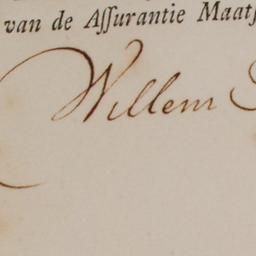 van de Aſſurantie Maatſ
Willem